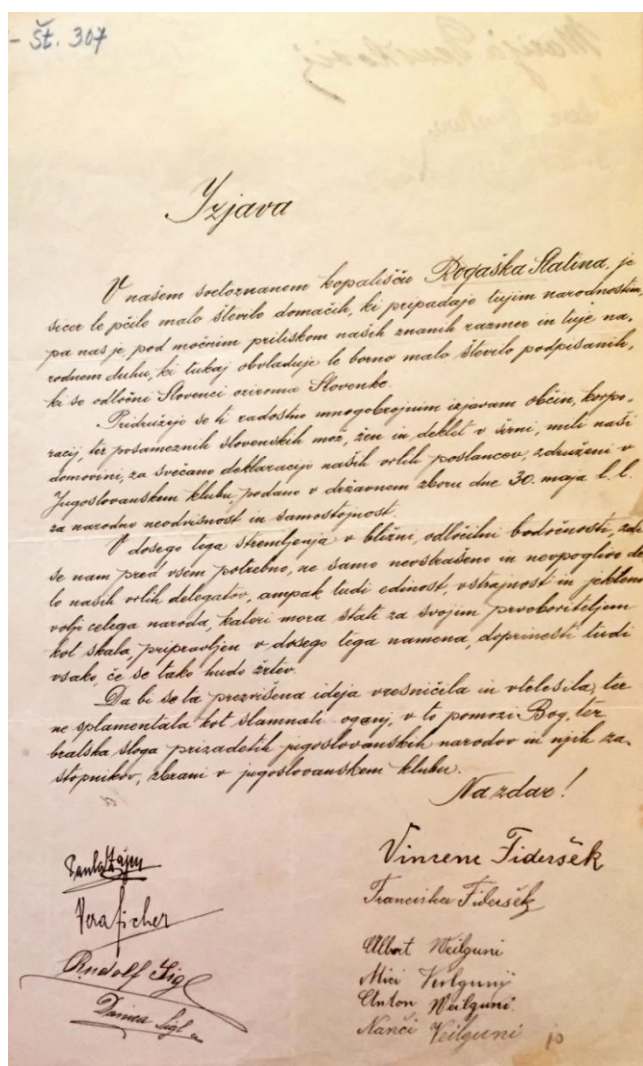 - Št. 307
Izjava
V našem svetoznanem kopališču Rogaška Slatina, je
sicer le pčilo malo število domačih, ki pripadajo tujim narodnostim,
pa nas je pod močnim pritiskom naših znanih razmer in tuje na,
rodnem duhu, ki tukaj obvladuje le borno malo število podpisanih,
ki so odločni Slovenci oziroma Slovenke.
Pridružijo se ti radostno mnogobrojnim izjavam občin, korpo,
racij, ter posameznih slovenskih mož, žen in deklet v širni, mili naši
domovini, za svečano deklaracijo naših vrlih poslancev, združeni v
Jugoslovanskem klubu, podano v državnem zboru dne 30. maja t. l.
za narodno neodvisnost in samostojnost.
V dosego tega stremljenja v bližni, odločilni bodočnosti, zdi
se nam pred vsem potrebno, ne samo neustrašeno in neupogljivo de
lo naših vrlih delegatov, ampak tudi edinost, vstrajnost in jekleno
voljo celega naroda, kateri mora stati za svojim prvoboriteljem
kot skala, pripravljen v dosego tega namena, doprinesti tudi
vsako, če še tako hudo žrtev.
Da bi se ta prezvišena ideja vresničila in vtelesila, ter
ne splamentala kot slamnati oganj, v to pomozi Bog, ter
bratska sloga prizadetih jugoslovanskih narodov in njih za,
stopnikov, zbrani v jugoslovanskem klubu.
Na zdar!
Vincenc Fideršek
Franciska Fideršek
Albert Weilguni
Mici Veilguni
Anton Weilguni
Nanči Veilguni
Vera ficher
Rudolf Sigl
Danica Sigl
10